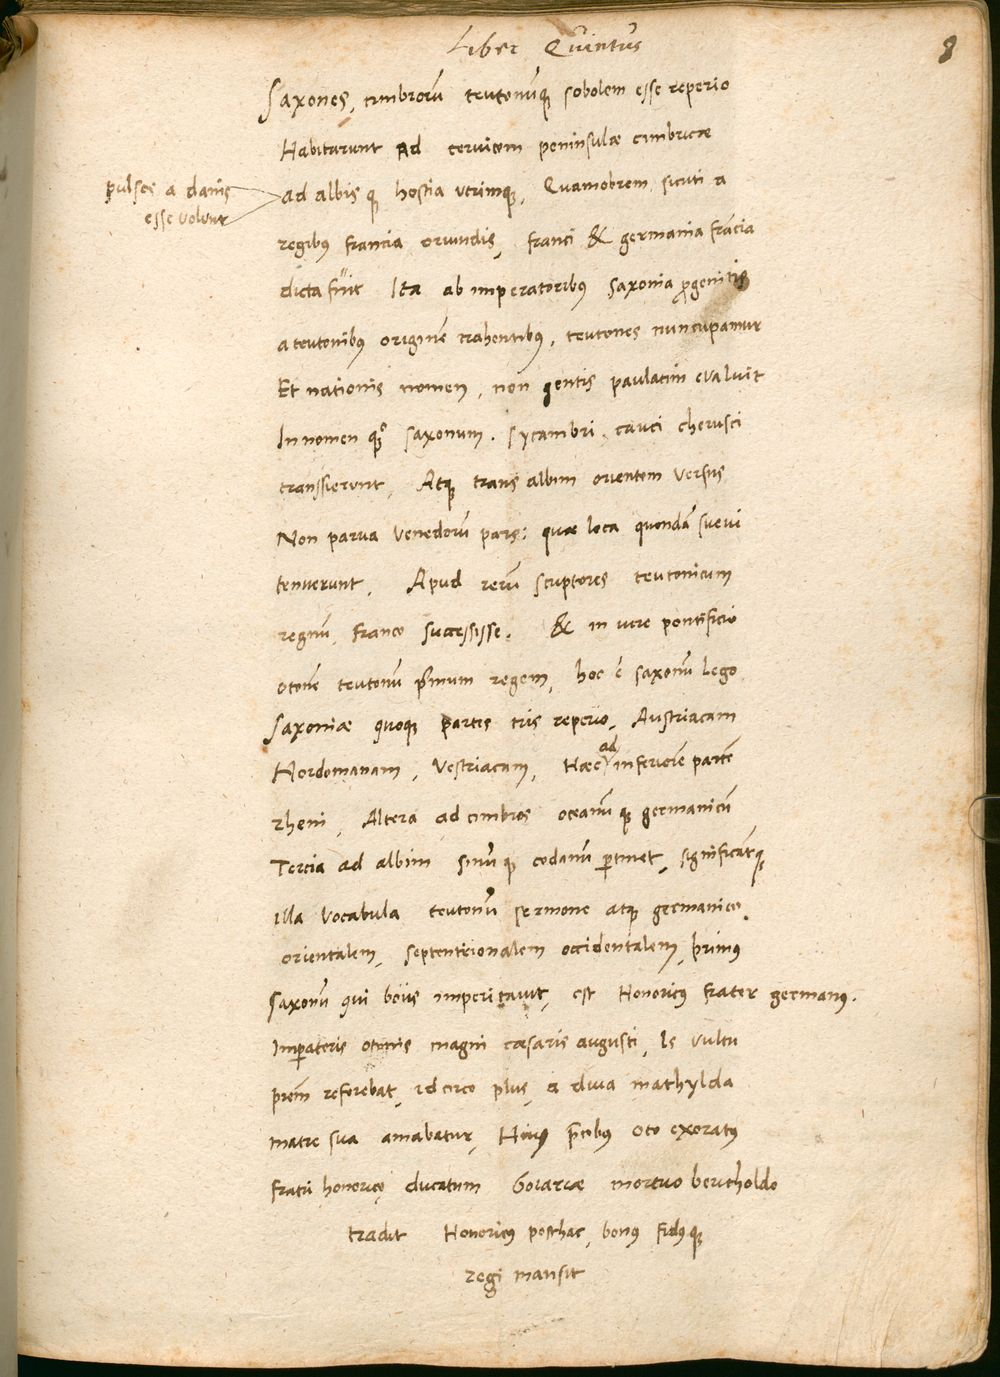 Liber Quintus
8
Saxones, cimbrorū teutonūq; sobolem esse reperio
Habitarunt ad ceruicem peninsulæ cimbricæ
pulsos a danis
esse volunt
ad albis q; hostia vtrimq;, Quamobrem sicuti a
regibus francia oriundis, franci & germania frācia
dicta fuit Ita ab imperatoribus saxonia progenitis
a teutonibus originē trahentibus, teutones nuncupamur
Et nationis nomen, non gentis paulatim evaluit
In nomen quoq; saxonum. sycambri, cauci cherusci
transsierunt, Atq; trans albim orientem versus
Non parua venedorū pars: quæ loca quondā sueui
tenuerunt, Apud rerū scriptores teutonicum
regnū franco successisse. & in vere pontificio
otonē teutonū primum regem, hoc ē saxonū lego
Saxoniæ quoq; partes tris reperio, Austriacam
Nordomanam, Vestriacam, Hæc ad inferiorē partē
rheni, Altera ad cimbros oceanū q; germanicū
Tercia ad albim sinū q; codanū pertinet, significātq;
illa vocabula teutonū sermone atq; germanico
orientalem, septentrionalem occidentalem, primus
saxonū qui boiis imperitauit, est Honoricus frater germanus.
Imperatoris otonis magni cæsaris augusti, Is vultu
prēm referebat, idcirco plus, a diua mathylda
matre sua amabatur, Huius prēcibus oto exoratus
fratri honorico ducatum boiariæ mortuo bertholdo
tradit Honoricus posthac, bonus fidusq;
regi mansit